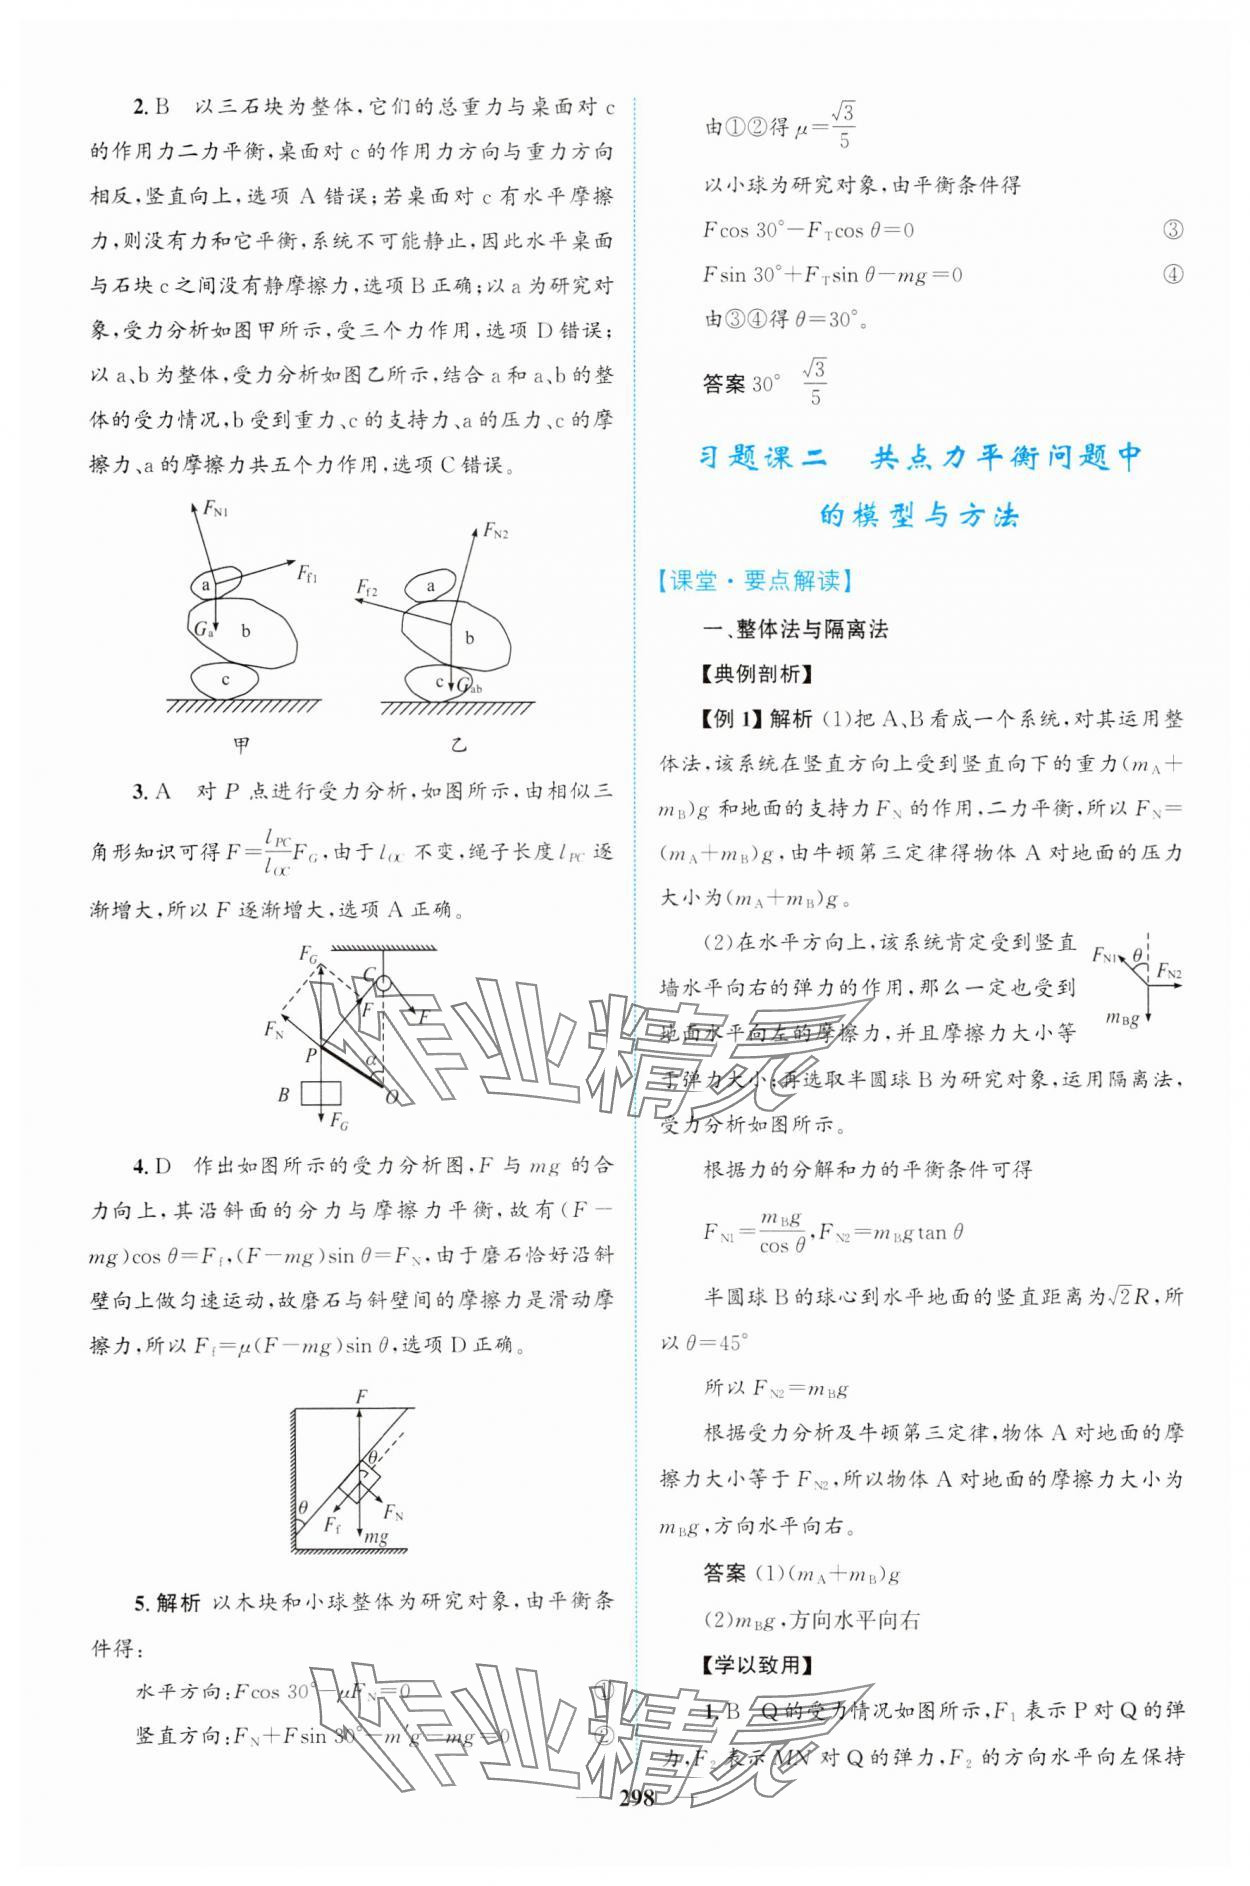 2. B 以三石块为整体,它们的总重力与桌面对c
的作用力二力平衡,桌面对c的作用力方向与重力方向
相反,竖直向上,选项 A 错误;若桌面对 c 有水平摩擦
力,则没有力和它平衡,系统不可能静止,因此水平桌面
与石块c之间没有静摩擦力,选项B正确;以a为研究对
象,受力分析如图甲所示,受三个力作用,选项 D 错误;
以a、b为整体,受力分析如图乙所示,结合 a 和 a、b 的整
体的受力情况,b 受到重力、c 的支持力、a 的压力、c 的摩
擦力、a的摩擦力共五个力作用,选项C错误。
F_N1
F_f1
a
G_a
b
c
甲
F_N2
F_f2
a
b
c
G_ab
乙
3. A 对 P 点进行受力分析,如图所示,由相似三
角形知识可得 F=\frac{l_{PC}}{l_{OC}}F_G,由于 l_{OC} 不变,绳子长度 l_{PC} 逐
渐增大,所以 F 逐渐增大,选项 A 正确。
F_G
C
F
F
F_N
P
α
B
O
F_G
4. D 作出如图所示的受力分析图,F 与 mg 的合
力向上,其沿斜面的分力与摩擦力平衡,故有(F-
mg)cos θ=F_f,(F-mg)sin θ=F_N,由于磨石恰好沿斜
壁向上做匀速运动,故磨石与斜壁间的摩擦力是滑动摩
擦力,所以 F_f=μ(F-mg)sin θ,选项 D 正确。
F
θ
θ
F_f
F_N
mg
5. 解析 以木块和小球整体为研究对象,由平衡条
件得:
水平方向:Fcos 30°-μF_N=0 ①
竖直方向:F_N+Fsin 30°-m′g-mg=0 ②
由①②得 μ=\frac{\sqrt{3}}{5}
以小球为研究对象,由平衡条件得
Fcos 30°-F_Tcos θ=0 ③
Fsin 30°+F_Tsin θ-mg=0 ④
由③④得 θ=30°。
答案 30° \frac{\sqrt{3}}{5}
习题课二 共点力平衡问题中
的模型与方法
【课堂·要点解读】
一、整体法与隔离法
【典例剖析】
【例 1】解析 (1)把 A、B 看成一个系统,对其运用整
体法,该系统在竖直方向上受到竖直向下的重力(m_A+
m_B)g 和地面的支持力 F_N 的作用,二力平衡,所以 F_N=
(m_A+m_B)g,由牛顿第三定律得物体 A 对地面的压力
大小为(m_A+m_B)g。
(2)在水平方向上,该系统肯定受到竖直
墙水平向右的弹力的作用,那么一定也受到
地面水平向左的摩擦力,并且摩擦力大小等
于弹力大小;再选取半圆球 B 为研究对象,运用隔离法,
受力分析如图所示。
F_N1
θ
F_N2
m_Bg
根据力的分解和力的平衡条件可得
F_N1=\frac{m_Bg}{cos θ},F_N2=m_Bgtan θ
半圆球 B 的球心到水平地面的竖直距离为\sqrt{2}R,所
以 θ=45°
所以 F_N2=m_Bg
根据受力分析及牛顿第三定律,物体 A 对地面的摩
擦力大小等于 F_N2,所以物体 A 对地面的摩擦力大小为
m_Bg,方向水平向右。
答案 (1)(m_A+m_B)g
(2)m_Bg,方向水平向右
【学以致用】
1. B Q 的受力情况如图所示,F_1 表示 P 对 Q 的弹
力,F_2 表示 MN 对 Q 的弹力,F_2 的方向水平向左保持
298
作业精灵
作业精灵